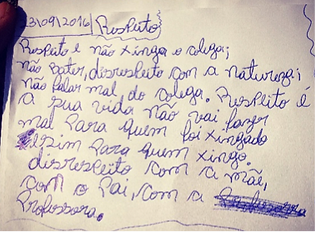 23/09/2016 Respeito
Respeito é não xinga o colega;
não bater, disrespeito com a natureza;
não falar mal do colega. Respeito é
a sua vida não vai fazer
mal para quem foi xingado
e sim para quem xingo.
disrespeito com a mãe,
com o Pai, com a
Professora.